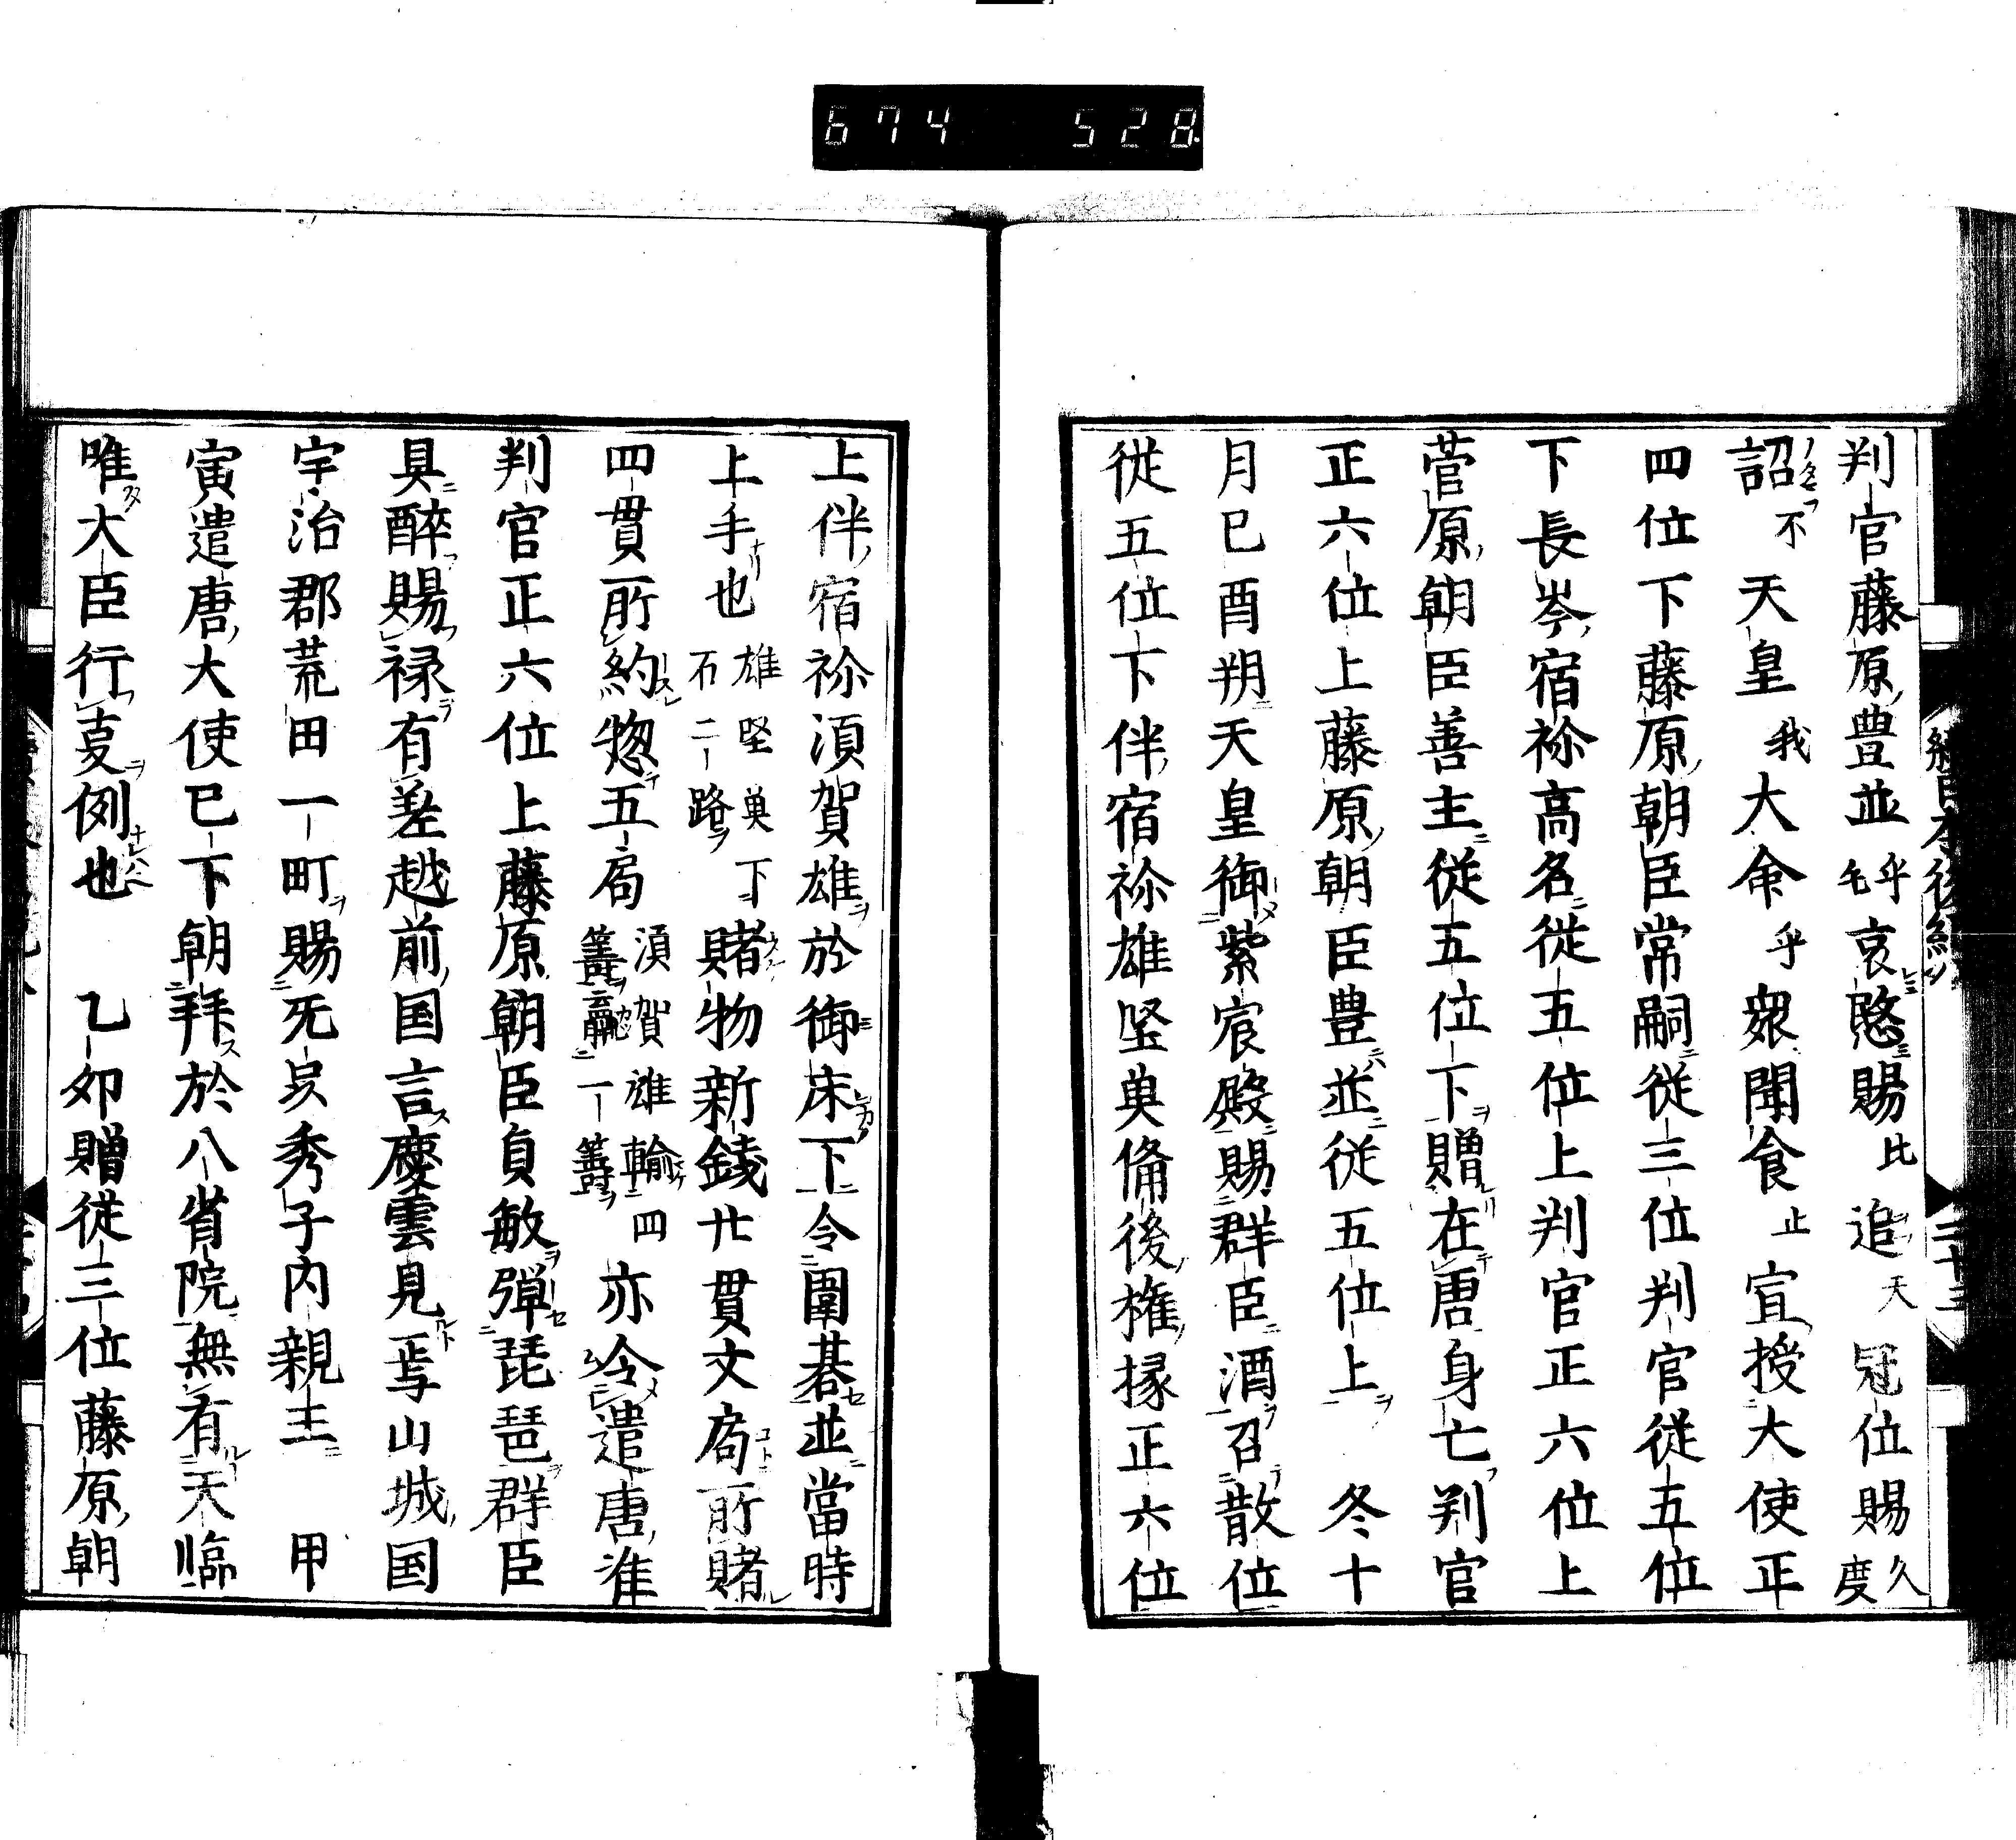 674 528
判官藤原豊並乎毛哀愍賜比追天冠位賜久度
詔不天皇我大命乎衆聞食止宣授大使正
四位下藤原朝臣常嗣従三位判官従五位
下長岑宿祢高名従五位上判官正六位上
菅原朝臣善主従五位下贈在唐身亡判官
正六位上藤原朝臣豊並従五位上 冬十
月已酉朔天皇御紫宸殿賜群臣酒召散位
従五位下伴宿祢雄堅臾俻後権掾正六位
上伴宿祢須賀雄於御床下令圍碁並當時
上手也雄堅臾下石二路賭物新銭廿貫文局所賭
四貫所約惣五局須賀雄輸四籌贏一籌亦令遣唐准
判官正六位上藤原朝臣貞敏弾琵琶群臣
具酔賜禄有差越前国言慶雲見焉山城国
宇治郡荒田一町賜无品秀子内親王 甲
寅遣唐大使已下朝拝於八省院無有天臨
唯大臣行事例也 乙卯贈従三位藤原朝